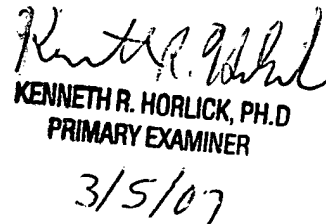 Kenneth R. Horlick
KENNETH R. HORLICK, PH.D
PRIMARY EXAMINER
3/5/07